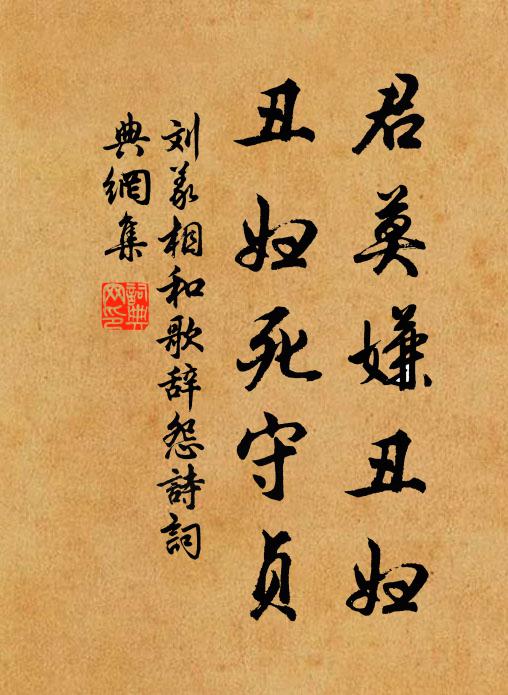 君莫嫌丑妇
丑妇死守贞
刘义相和歌辞怨詩詞
典網集
詞典网印